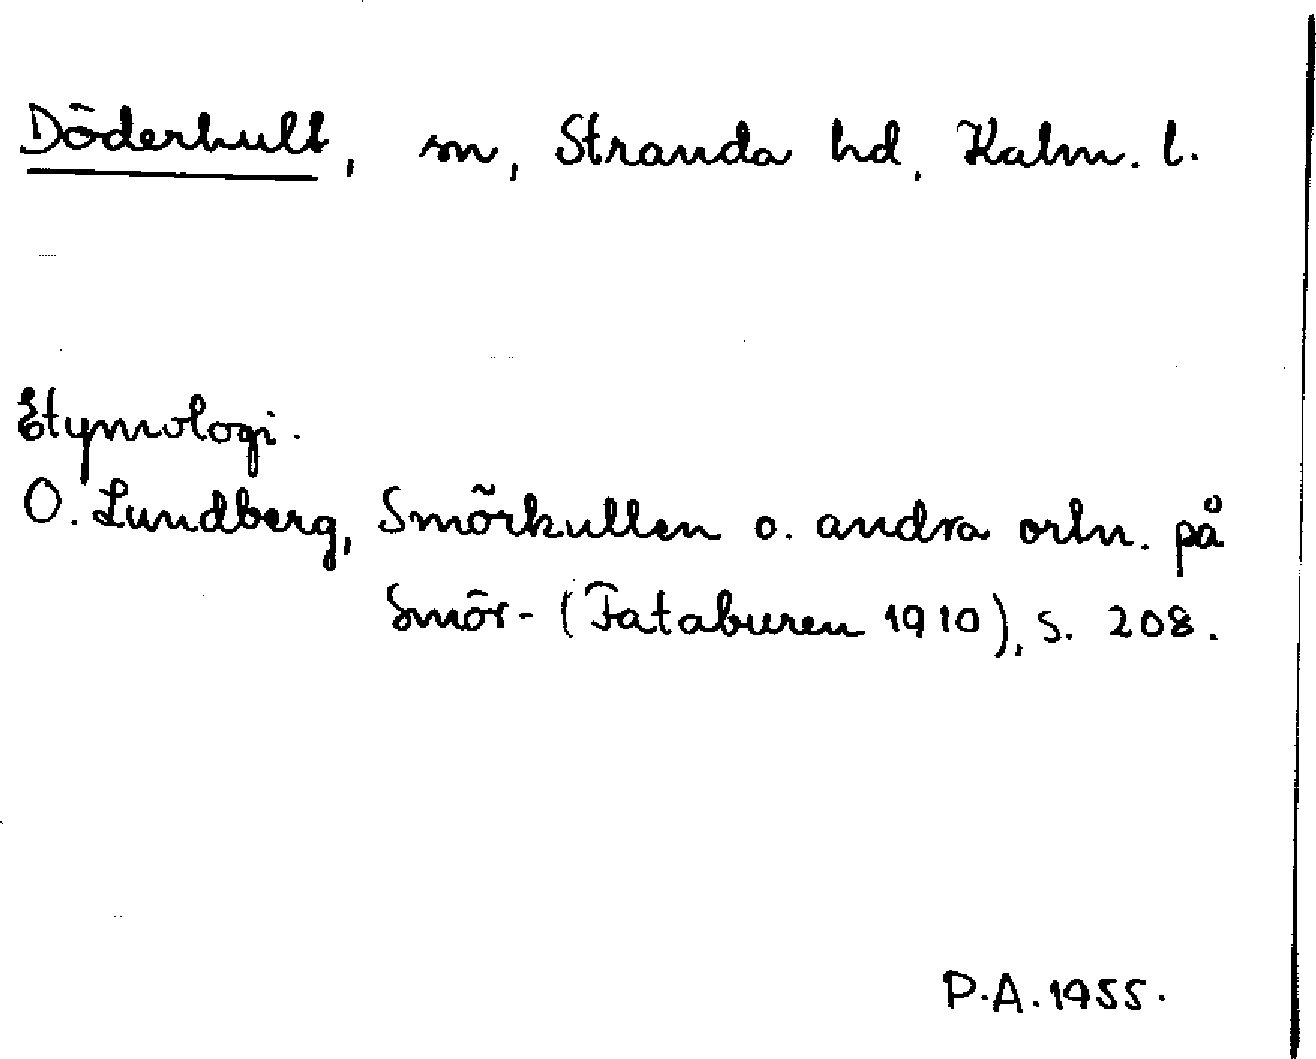 Döderhult, sn, Stranda hd, Kalm. l.
Etymologi.
O. Lundberg, Smörkullen o. andra ortn. på
Smör- (Fataburen 1910), s. 208.
P.A. 1955.